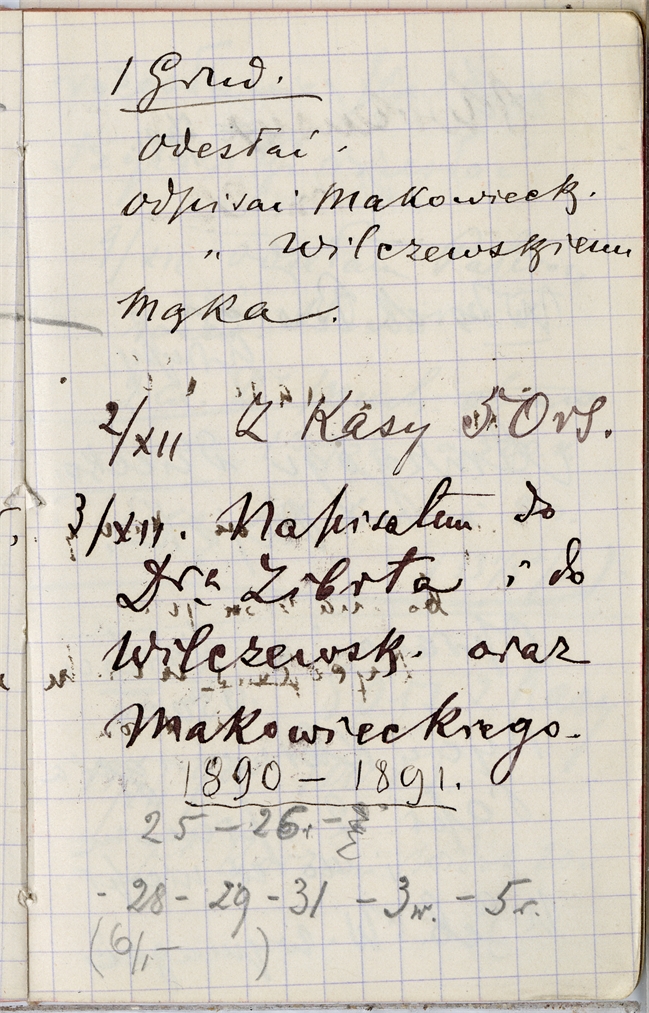 1 Grud.
Odesłać.
Odpisać Makowieck.
" Wilczewskiemu
Mąka.
2/XII Z Kasy 50 rs.
3/XII. Napisałem do
Dra Zibrta i do
Wilczewsk. oraz
Makowieckiego.
1890 – 1891.
25 – 26. –
- 28 - 29 - 31 - 3 - 5
(6/1 - )